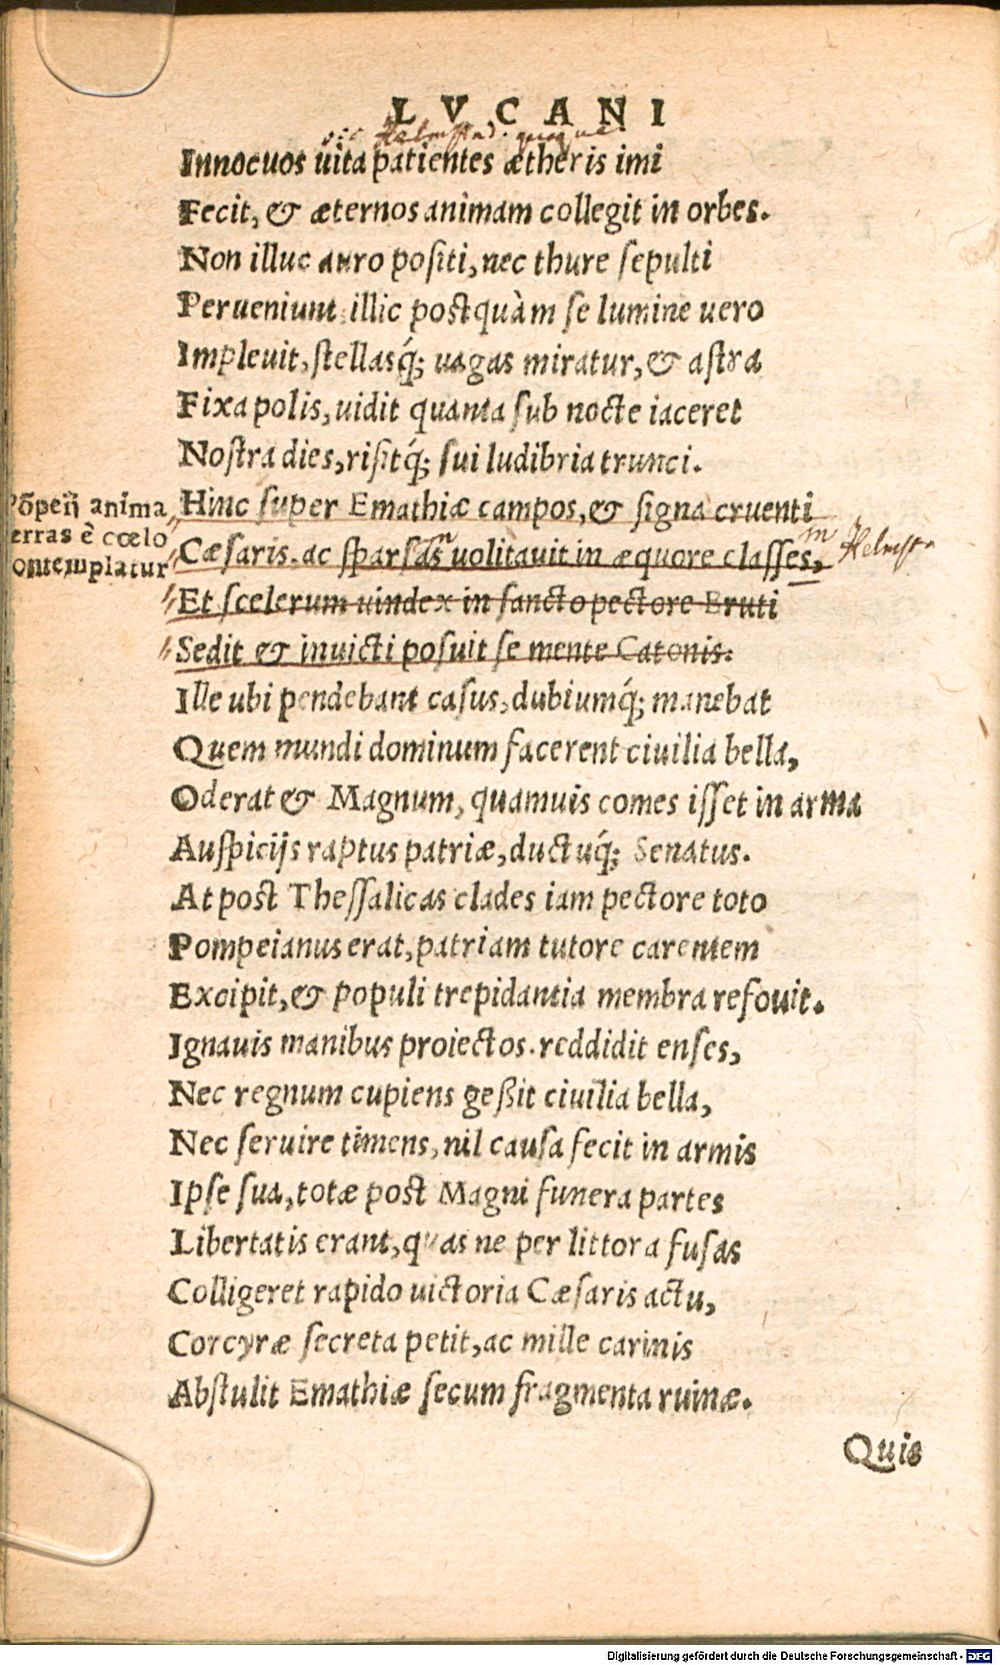 LVCANI
sic Helmstad. quoque
Innocuos uita patientes ætheris imi
Fecit, & æternos animam collegit in orbes.
Non illuc auro positi, nec thure sepulti
Perueniunt: illic postquàm se lumine uero
Impleuit, stellasq́; uagas miratur, & astra
Fixa polis, uidit quanta sub nocte iaceret
Nostra dies, risitq́; sui ludibria trunci.
Põpeij anima
erras è cœlo
ontemplatur
Hinc super Emathiæ campos, & signa cruenti
Cæsaris. ac sparsas uolitauit in æquore classes,
n
m Helmst
Et scelerum uindex in sancto pectore Bruti
Sedit & inuicti posuit se mente Catonis.
Ille ubi pendebant casus, dubiumq́; manebat
Quem mundi dominum facerent ciuilia bella,
Oderat & Magnum, quamuis comes isset in arma
Auspicijs raptus patriæ, ductuq́; Senatus.
At post Thessalicas clades iam pectore toto
Pompeianus erat, patriam tutore carentem
Excipit, & populi trepidantia membra refouit.
Ignauis manibus proiectos. reddidit enses,
Nec regnum cupiens geßit ciuilia bella,
Nec seruire timens, nil causa fecit in armis
Ipse sua, totæ post Magni funera partes
Libertatis erant, quas ne per littora fusas
Colligeret rapido uictoria Cæsaris actu,
Corcyræ secreta petit, ac mille carinis
Abstulit Emathiæ secum fragmenta ruinæ.
Quis
Digitalisierung gefördert durch die Deutsche Forschungsgemeinschaft - DFG